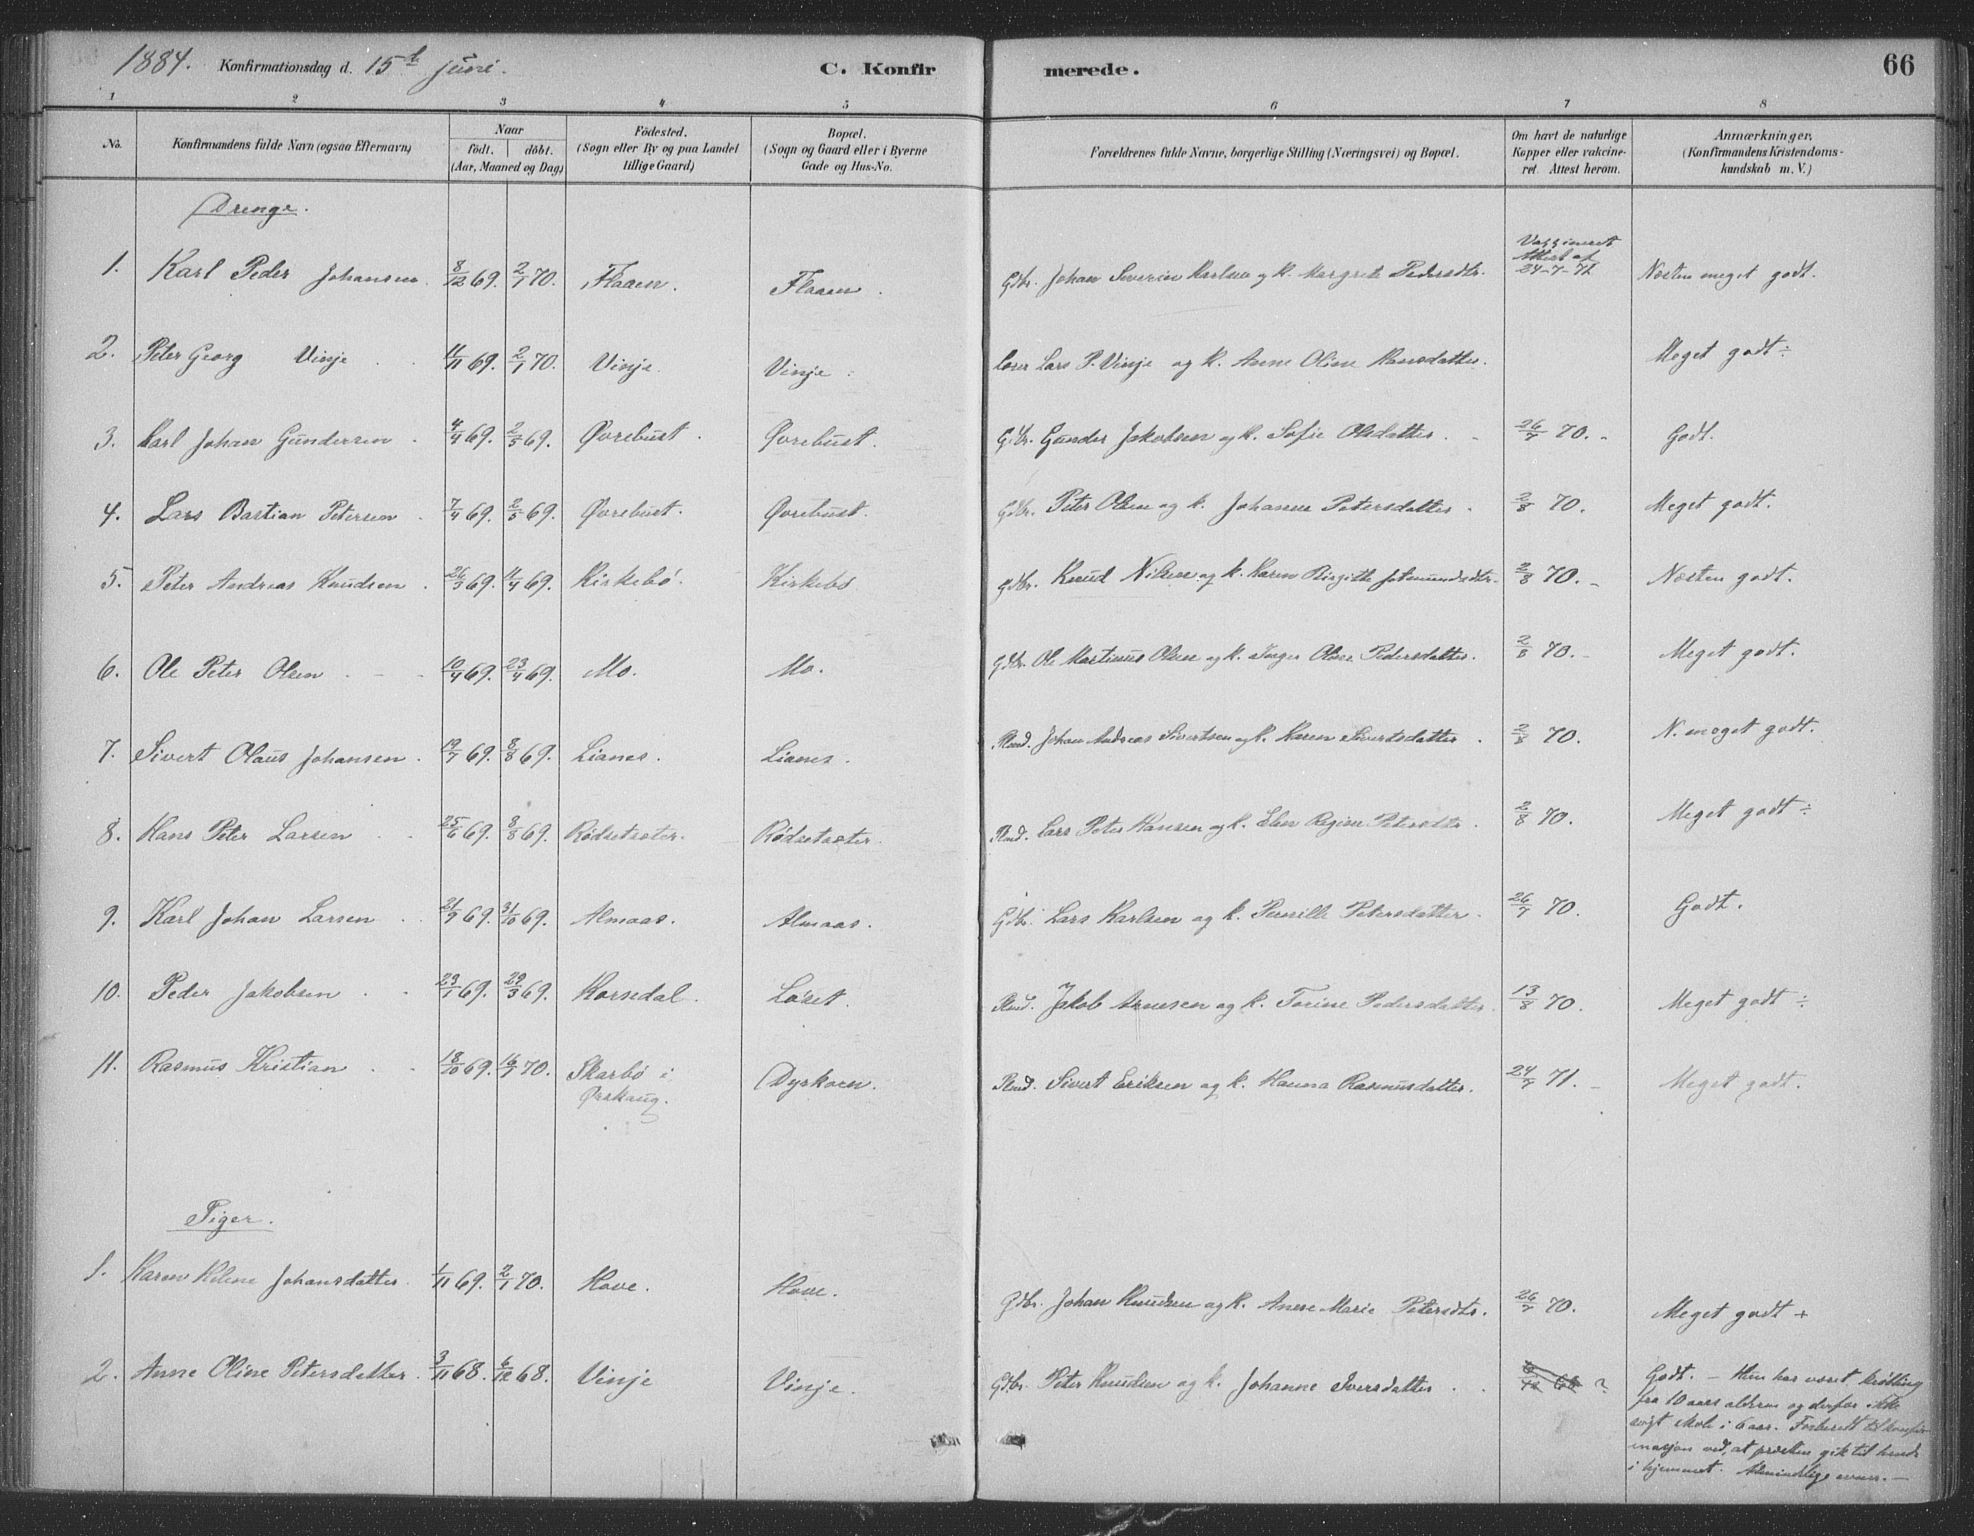 1884. Konfirmationsdag d. 15de juni. C. Konfir merede. 66
1 2 3 4 5 6 7 8
No. Konfirmandens fulde Navn (ogsaa Efternavn) Naar födt. döbt. (Aar, Maaned og Dag) Födested. (Sogn eller By og paa Landet tillige Gaard) Bopæl. (Sogn og Gaard eller i Byerne Gade og Hus-No. Forældrenes fulde Navne, borgerlige Stilling (Næringsvei) og Bopæl. Om havt de naturlige Kopper eller vakcineret. Attest herom. Anmærkninger, (Konfirmandens Kristendomskundskab m. V.)
Drenge.
1. Karl Peder Johansen 8/12 69. 2/1 70. Flaaen. Flaaen. Gdbr. Johan Severin Karlsen og k. Margrete Pedersdtr. Vaccineret Attest af 24-7-71 Næsten meget godt.
2. Peter Georg Vinje 11/11 69. 2/1 70. Vinje. Vinje. Lærer Lars P. Vinje og k. Anne Oline Hansdatter. Meget godt ÷
3. Karl Johan Gundersen 4/4 69. 2/5 69. Øvrebust. Øvrebust. Gdbr. Gunder Jakobsen og k. Sofie Olsdatter. 26/7 70. Godt.
4. Lars Bastian Petersen 7/4 69. 2/5 69. Øvrebust. Øvrebust. Gdbr. Peter Olsen og k. Johanne Petersdatter. 2/8 70. Meget godt.
5. Peter Andreas Knudsen 26/3 69. 11/4 69. Kirkebø. Kirkebø. Gdbr. Knud Nilsen og k. Karen Birgitte Jetmundsdtr. 2/8 70. Næsten godt.
6. Ole Peter Olsen 10/4 69. 23/4 69. Mo. Mo. Gdbr. Ole Martinus Olsen og k. Inger Oline Pedersdatter. 2/8 70. Meget godt.
7. Sivert Olaus Johansen. 19/7 69. 8/8 69. Lianes. Lianes. Pland. Johan Andreas Sivertsen og k. Karen Sivertsdatter. 2/8 70. N. meget godt.
8. Hans Peter Larsen 25/6 69. 8/8 69. Rødsetsæter. Rødsetsæter. Pland. Lars Peter Hansen og k. Elen Regine Petersdtr. 2/8 70. Meget godt ÷
9. Karl Johan Larsen 21/9 69. 31/10 69. Almaas. Almaas. Gdbr. Lars Karlsen og k. Pernille Petersdatter. 26/7 70. Godt.
10. Peder Jakobsen 29/1 69. 29/3 69. Korsedal. Løset. Pland. Jakob Arnesen og k. Torine Pedersdatter. 13/8 70. Meget godt ÷
11. Rasmus Kristian 18/10 69. 16/7 70. Skarbø i Ørskaug. Dyrkorn. Pland. Sivert Eriksen og k. Hanna Rasmusdatter. 24/7 71. Meget godt.
Piger.
1. Karen Heline Johansdatter. 1/11 69. 2/1 70. Hove. Hove. Gdbr. Johan Knudsen og k. Anne Marie Petersdtr. 26/7 70. Meget godt +
2. Anne Oline Petersdatter. 3/11 68. 6/12 68. Vinje Vinje. Gdbr. Peter Knudsen og k. Johanne Iversdatter. 6/12 68 ? Godt. — Hun har været krøbling
fra 10 aars alderen og derfor ikke
søgt skole i 6 aar. Forberedt til konfir-
masjon ved, at præsten gik til hende
i hjemmet. Almindelige evner. —